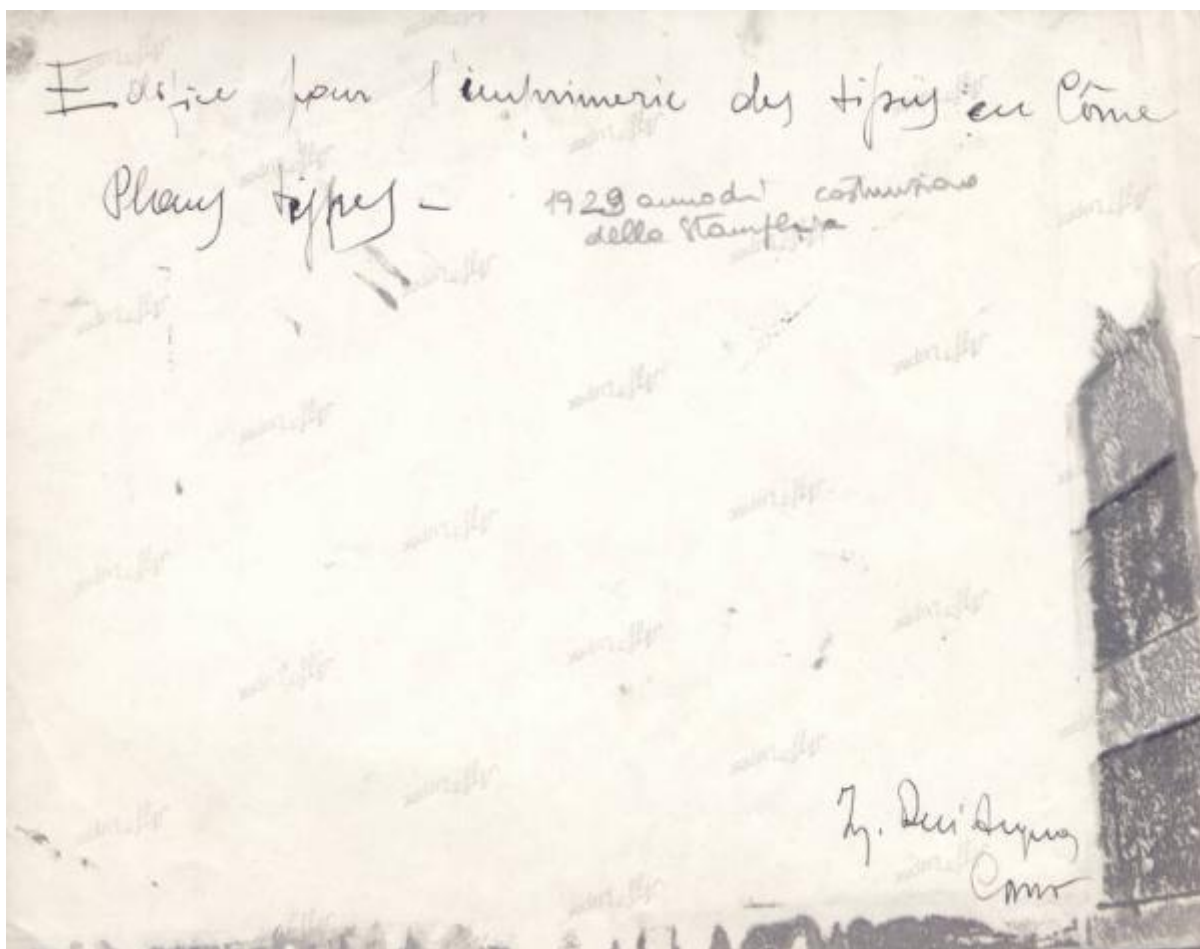 Edifice pour l'imprimerie des tissus en Côme
Plans types -
1929 anno di costruzione
della Stamperia
Ing.
Como